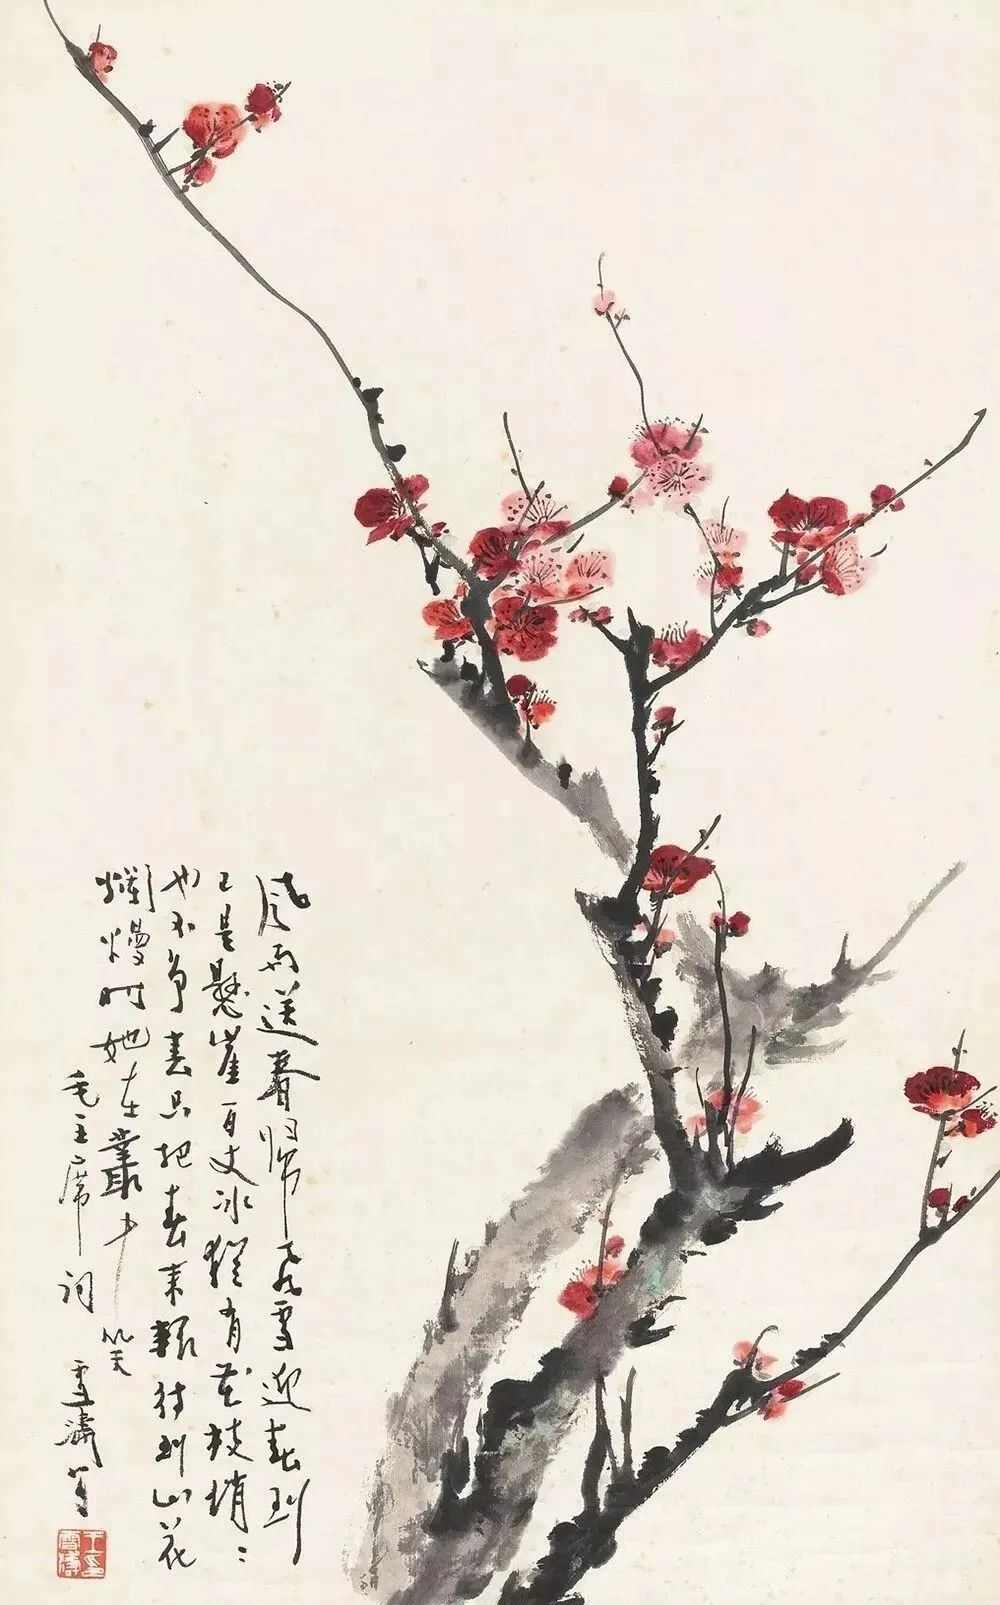 风雨送春归飞雪迎春到
已是懸崖百丈冰猶有花枝俏〻
也不争春只把春来報待到山花
爛熳时她在叢中笑
毛主席词 雪濤写
王雪濤印